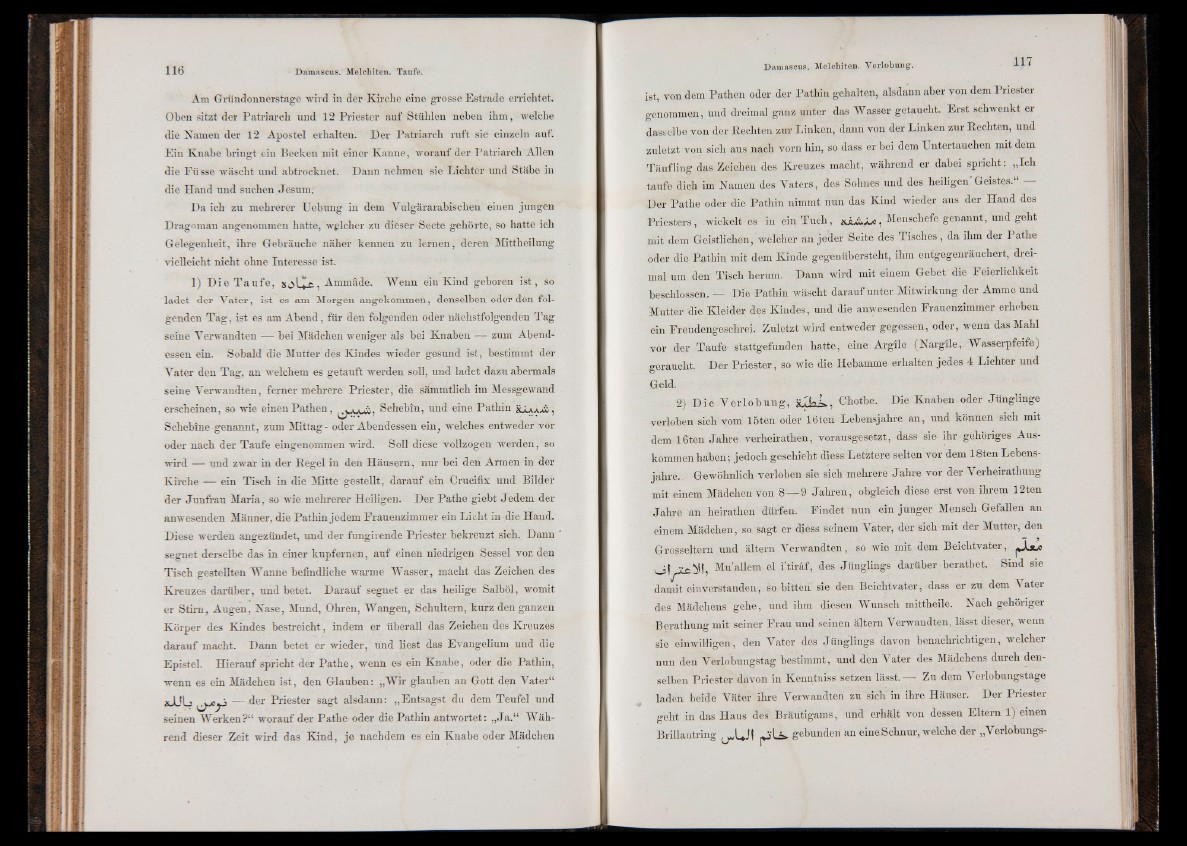 116
Damascus. Melchiten. Taufe.
Am Gründonnerstage wird in der Kirche eine grosse Estrade errichtet.
Oben sitzt der Patriarch und 12 Priester auf Stühlen neben ihm, welche
die Namen der 12 Apostel erhalten. Der Patriarch ruft sie einzeln auf.
Ein Knabe bringt ein Becken mit einer Kanne, worauf der Patriarch Allen
die Füsse wäscht und abtrocknet. Dann nehmen sie Lichter und Stäbe in
die Hand und suchen Jesum.
Da ich zu mehrerer Uebung in dem Vulgärarabischen einen jungen
Dragoman angenommen hatte, welcher zu dieser Secte gehörte, so hatte ich
Gelegenheit, ihre Gebräuche näher kennen zu lernen, deren Mittheilung
vielleicht nicht ohne Interesse ist.
1) Die Taufe, عمّادة, Ammâde. Wenn ein Kind geboren ist, so
ladet der Vater, ist es am Morgen angekommen, denselben oder den fol-
genden Tag, ist es am Abend, für den folgenden oder nächstfolgenden Tag
seine Verwandten — bei Mädchen weniger als bei Knaben — zum Abend-
essen ein. Sobald die Mutter des Kindes wieder gesund ist, bestimmt der
Vater den Tag, an welchem es getauft werden soll, und ladet dazu abermals
seine Verwandten, ferner mehrere Priester, die sämmtlich im Messgewand
erscheinen, so wie einen Pathen, شبين, Schebîn, und eine Pathin شبينة,
Schebîne genannt, zum Mittag- oder Abendessen ein, welches entweder vor
oder nach der Taufe eingenommen wird. Soll diese vollzogen werden, so
wird — und zwar in der Regel in den Häusern, nur bei den Armen in der
Kirche — ein Tisch in die Mitte gestellt, darauf ein Crucifix und Bilder
der Junfrau Maria, so wie mehrerer Heiligen. Der Pathe giebt Jedem der
anwesenden Männer, die Pathin jedem Frauenzimmer ein Licht in die Hand.
Diese werden angezündet, und der fungirende Priester bekreuzt sich. Dann
segnet derselbe das in einer kupfernen, auf einen niedrigen Sessel vor den
Tisch gestellten Wanne befindliche warme Wasser, macht das Zeichen des
Kreuzes darüber, und betet. Darauf segnet er das heilige Salböl, womit
er Stirn, Augen, Nase, Mund, Ohren, Wangen, Schultern, kurz den ganzen
Körper des Kindes bestreicht, indem er überall das Zeichen des Kreuzes
darauf macht. Dann betet er wieder, und liest das Evangelium und die
Epistel. Hierauf spricht der Pathe, wenn es ein Knabe, oder die Pathin,
wenn es ein Mädchen ist, den Glauben: „Wir glauben an Gott den Vater“
نومن بالله — der Priester sagt alsdann: „Entsagst du dem Teufel und
seinen Werken?“ worauf der Pathe oder die Pathin antwortet: „Ja.“ Wäh-
rend dieser Zeit wird das Kind, je nachdem es ein Knabe oder Mädchen
Damascus. Melchiten. Verlobung.
117
ist, von dem Pathen oder der Pathin gehalten, alsdann aber von dem Priester
genommen, und dreimal ganz unter das Wasser getaucht. Erst schwenkt er
dasselbe von der Rechten zur Linken, dann von der Linken zur Rechten, und
zuletzt von sich aus nach vorn hin, so dass er bei dem Untertauchen mit dem
Täufling das Zeichen des Kreuzes macht, während er dabei spricht: „Ich
taufe dich im Namen des Vaters, des Sohnes und des heiligen Geistes.“ —
Der Pathe oder die Pathin nimmt nun das Kind wieder aus der Hand des
Priesters, wickelt es in ein Tuch, منشفة, Menschefe genannt, und geht
mit dem Geistlichen, welcher an jeder Seite des Tisches, da ihm der Pathe
oder die Pathin mit dem Kinde gegenübersteht, ihm entgegenräuchert, drei-
mal um den Tisch herum. Dann wird mit einem Gebet die Feierlichkeit
beschlossen. — Die Pathin wäscht darauf unter Mitwirkung der Amme und
Mutter die Kleider des Kindes, und die anwesenden Frauenzimmer erheben
ein Freudengeschrei. Zuletzt wird entweder gegessen, oder, wenn das Mahl
vor der Taufe stattgefunden hatte, eine Argîle (Nargîle, Wasserpfeife)
geraucht. Der Priester, so wie die Hebamme erhalten jedes 4 Lichter und
Geld.
2) Die Verlobung, خطبة, Chotbe. Die Knaben oder Jünglinge
verloben sich vom 15ten oder 16ten Lebensjahre an, und können sich mit
dem 16ten Jahre verheirathen, vorausgesetzt, dass sie ihr gehöriges Aus-
kommen haben; jedoch geschieht diess Letztere selten vor dem 18ten Lebens-
jahre. Gewöhnlich verloben sie sich mehrere Jahre vor der Verheirathung
mit einem Mädchen von 8—9 Jahren, obgleich diese erst von ihrem 12ten
Jahre an heirathen dürfen. Findet nun ein junger Mensch Gefallen an
einem Mädchen, so sagt er diess seinem Vater, der sich mit der Mutter, den
Grosseltern und ältern Verwandten, so wie mit dem Beichtvater, معلم
الاعتراف, Mu'allem el i'tirâf, des Jünglings darüber berathet. Sind sie
damit einverstanden, so bitten sie den Beichtvater, dass er zu dem Vater
des Mädchens gehe, und ihm diesen Wunsch mittheile. Nach gehöriger
Berathung mit seiner Frau und seinen ältern Verwandten, lässt dieser, wenn
sie einwilligen, den Vater des Jünglings davon benachrichtigen, welcher
nun den Verlobungstag bestimmt, und den Vater des Mädchens durch den-
selben Priester davon in Kenntniss setzen lässt. — Zu dem Verlobungstage
laden beide Väter ihre Verwandten zu sich in ihre Häuser. Der Priester
geht in das Haus des Bräutigams, und erhält von dessen Eltern 1) einen
Brillantring خاتم الماس gebunden an eine Schnur, welche der „Verlobungs-